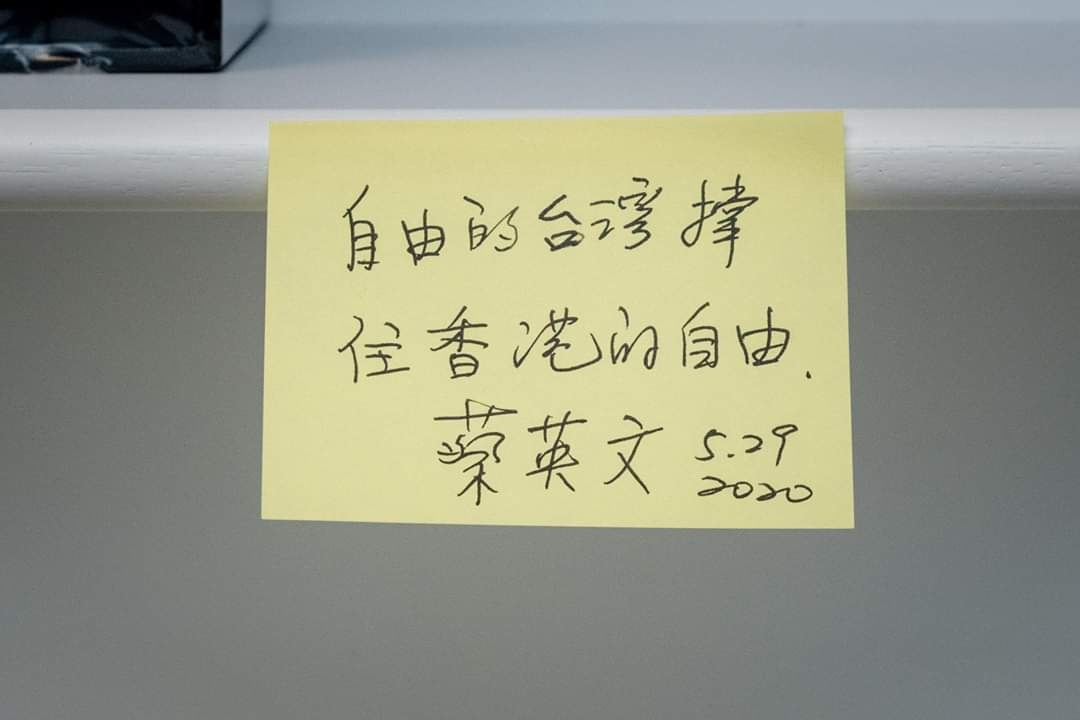 自由的台灣撐
住香港的自由.
蔡英文 5.29
2020